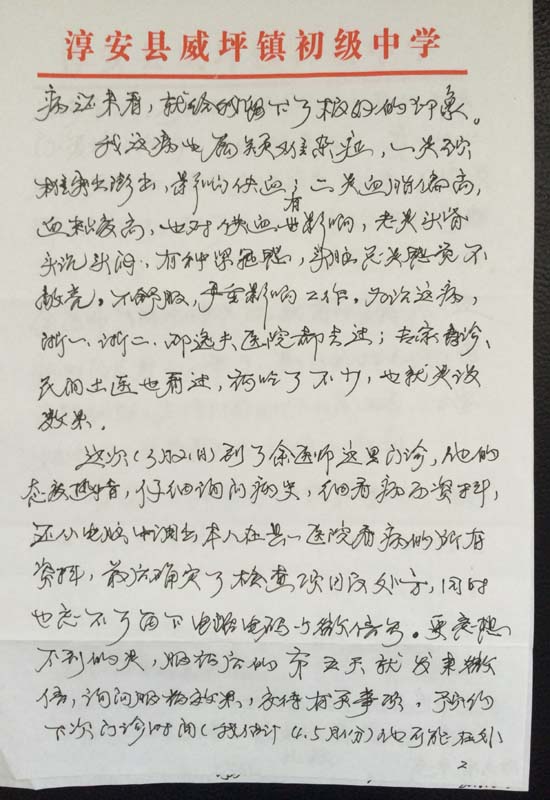 淳安县威坪镇初级中学
病还未看，就给我留下了极好的印象。
我这病也属颈椎杂症，一是颈
椎突出澎出，影响供血；二是血脂偏高，
血粘度高，也对供血有影响，老是头昏
头沉头闷，有种黑冠感，头脑总是感觉不
敞亮。不舒服，严重影响工作。为治这病，
浙一、浙二、邵逸夫医院都去过；专家看诊、
民间土医也看过，药吃了不少，也就是没
效果。
这次(3月2日)到了余医师这里门诊，他的
态度，仔细询问病史，细看病历资料，
还从电脑中调出本人在县一医院看病的所有
资料，最后确定了检查项目及处方，同时
也忘不了留下电话号码与微信号。更意想
不到的是，服药后的第五天就发来微
信，询问服药效果，交待有关事项，预约
下次门诊时间(我估计4.5月份)他可能在外
2